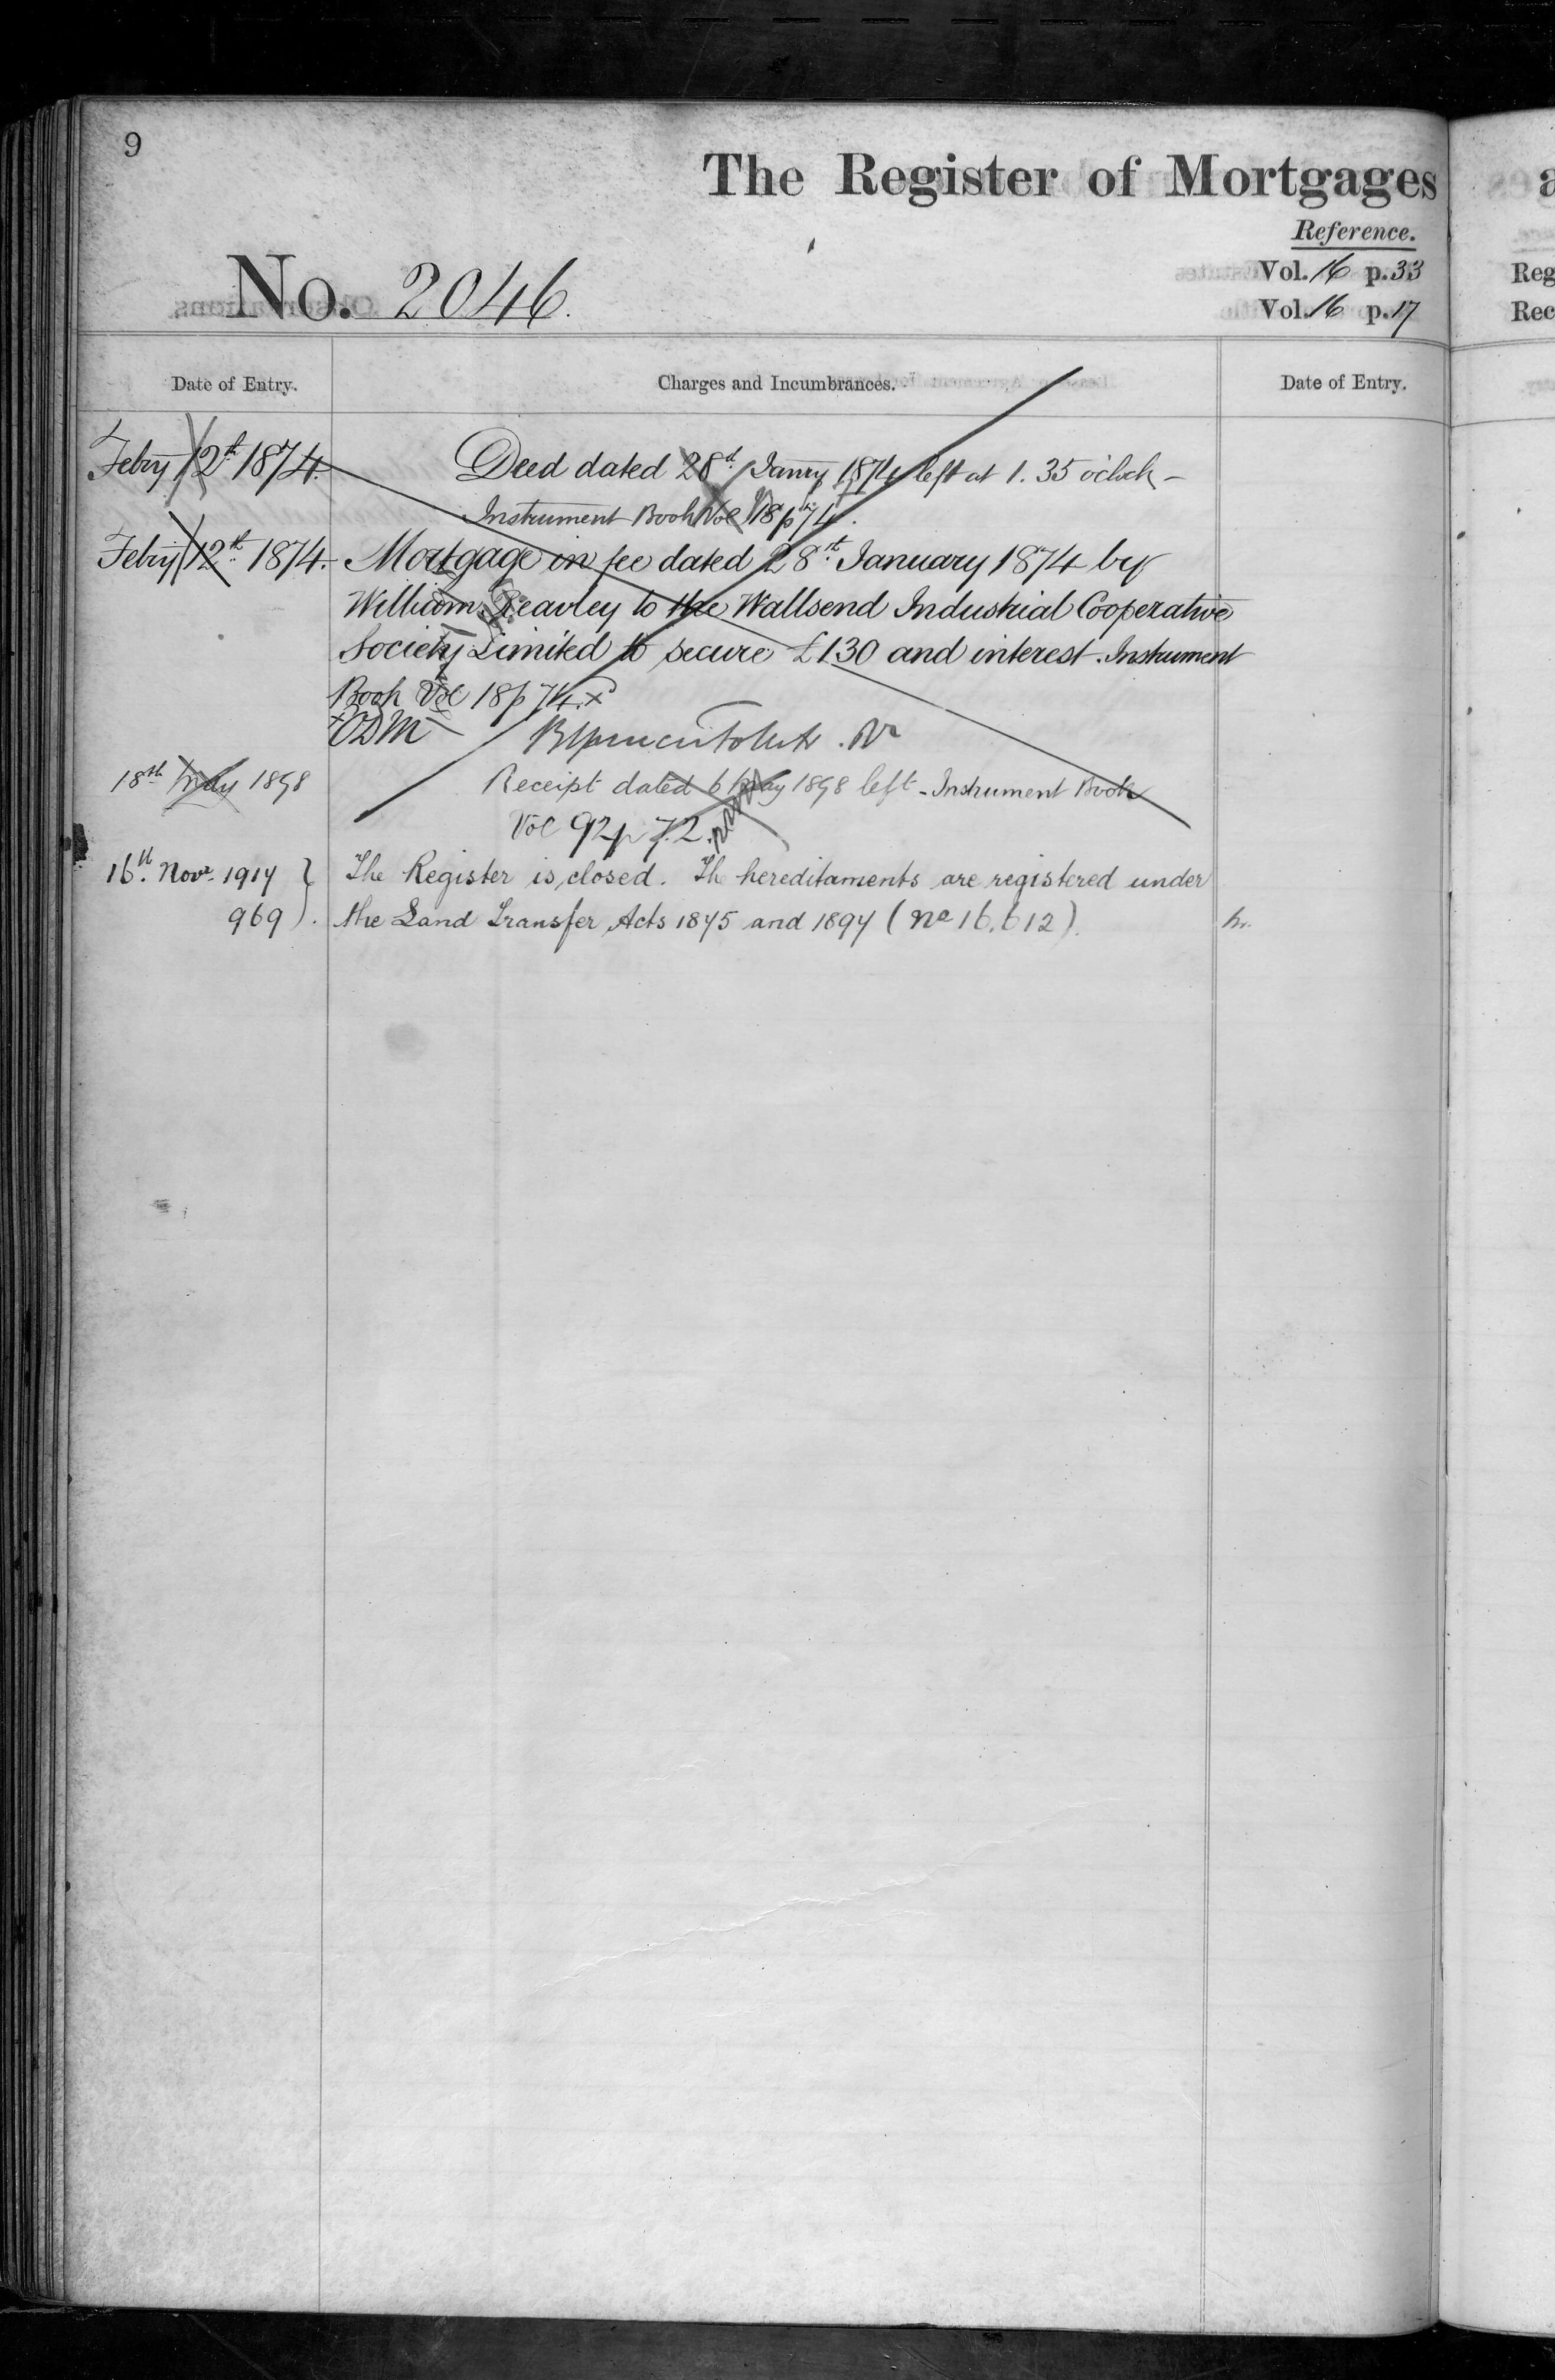 9
The Register of Mortgages
Reference.
No. 2046.
Vol. 16 p. 33
Vol. 16 p. 17
Reg
Rec
Date of Entry. Charges and Incumbrances. Date of Entry.
Febry 12th 1874. Deed dated 28th Janry 1874 left at 1. 35 o'clock -
Instrument Book Vol 18 p 74.
Febry 12th 1874. Mortgage in fee dated 28th January 1874 by
William Reavley to the Wallsend Industrial Cooperative
Society Limited to secure £130 and interest. Instrument
Book Vol 18 p 74. x
x ODM
18th May 1898 Receipt dated 6 May 1898 left - Instrument Book
Vol 92 p 72.
16th Novr. 1917 } The Register is closed. The hereditaments are registered under
969 ). the Land Transfer Acts 1875 and 1897 (No 16.612).